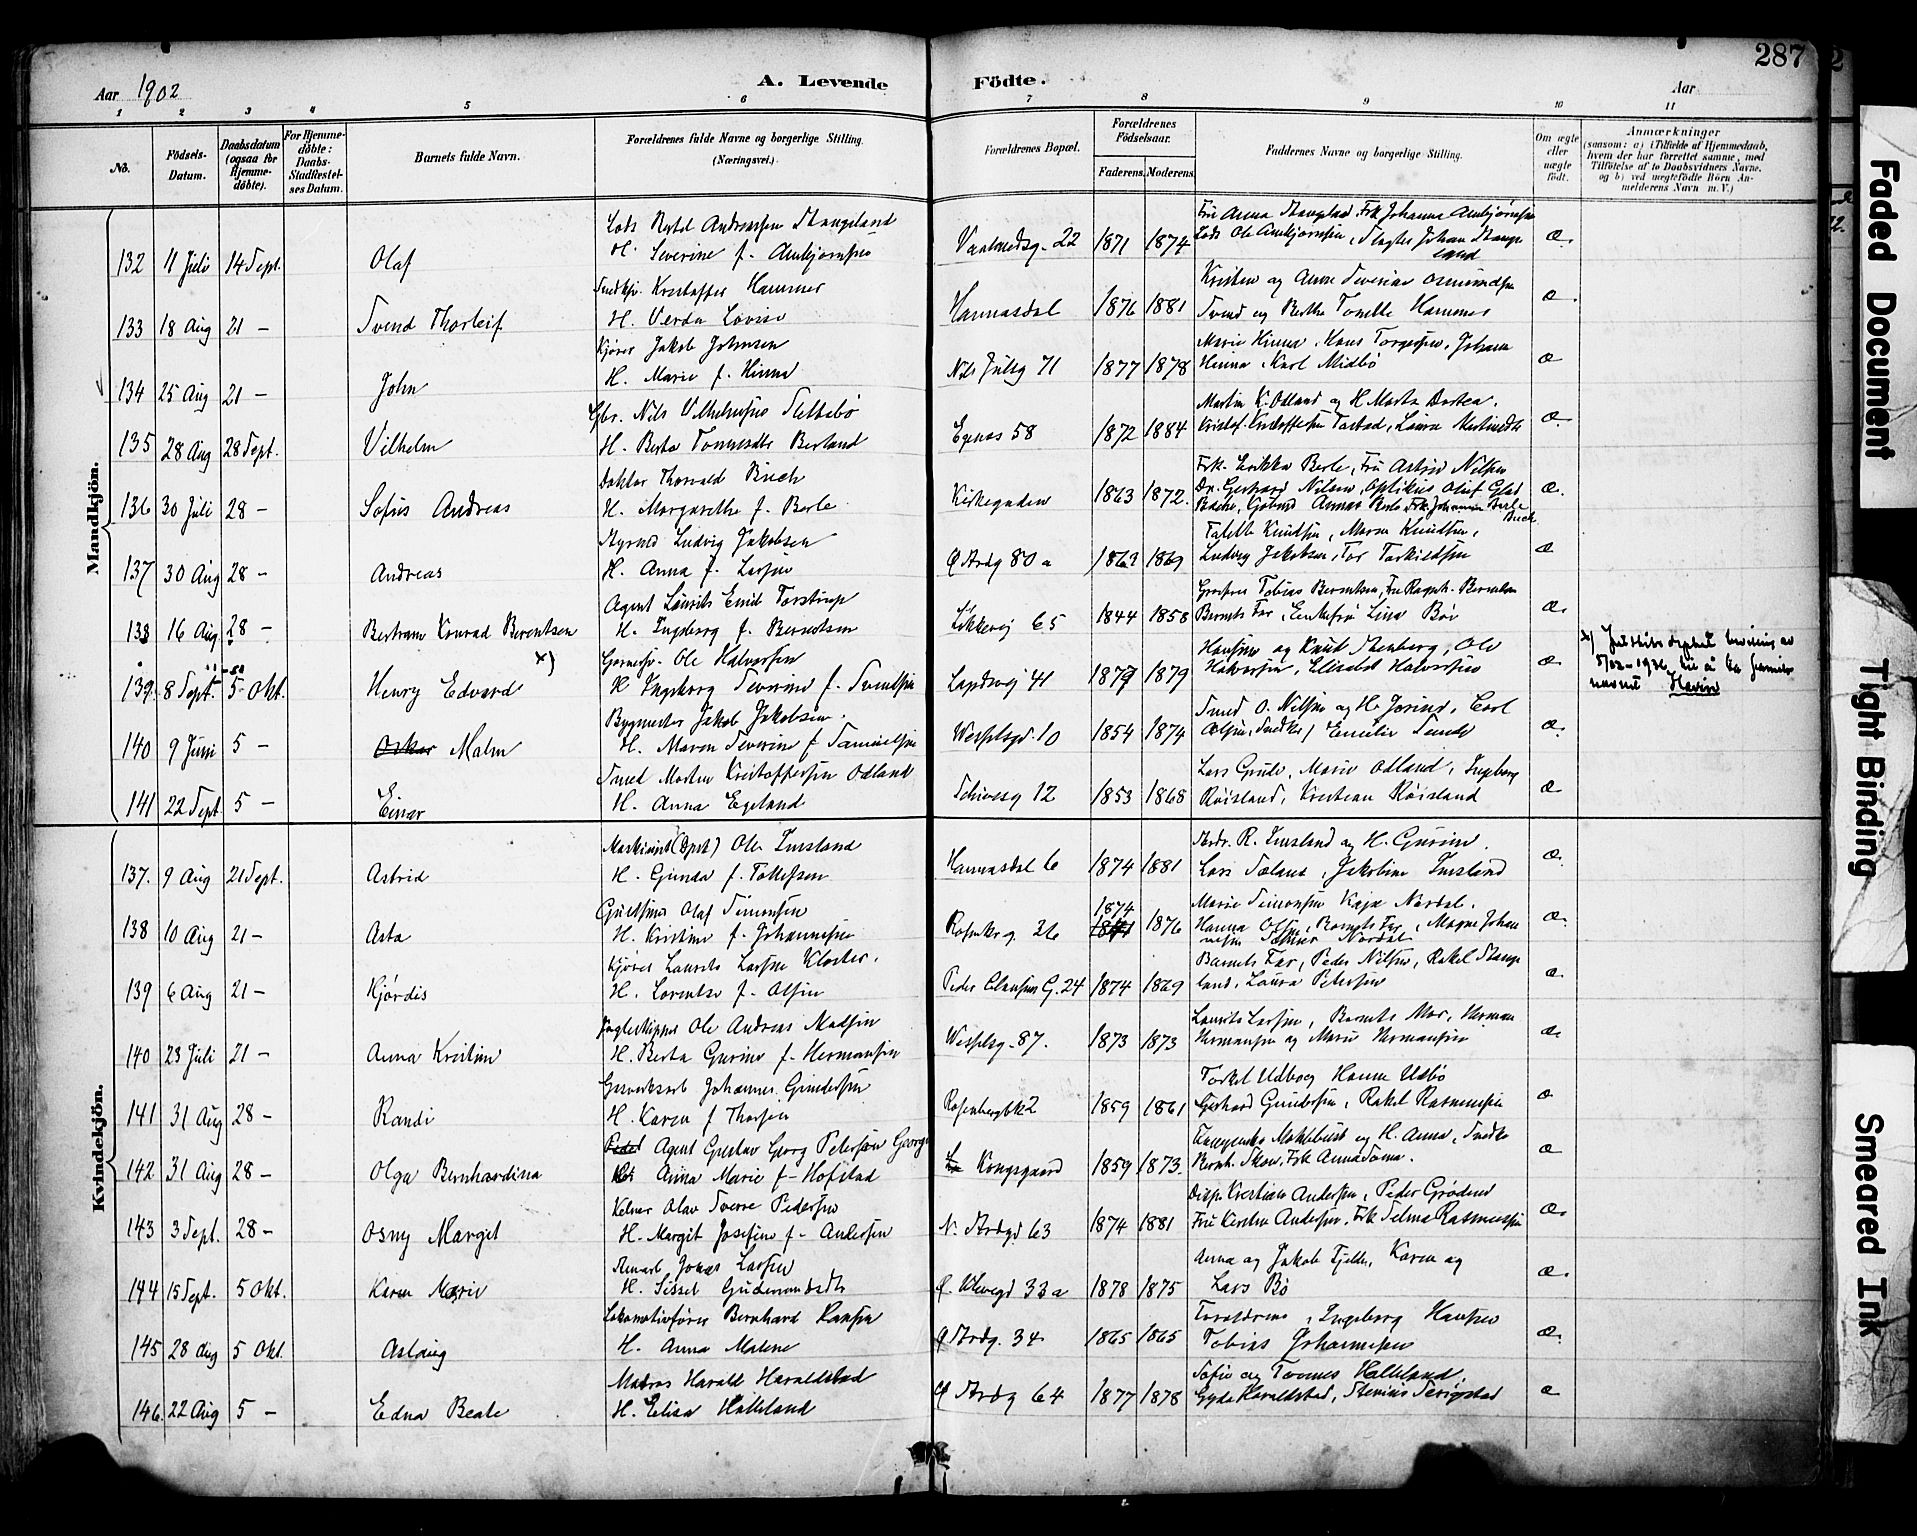 287
Aar 1902
A. Levende Födte.
Aar
1 2 3 4 5 6 7 8 9 10 11
No.
Födsels-Datum.
Daabsdatum (ogsaa for Hjemme-döbte).
For Hjemme-döbte: Daabs-Stadfæstel-ses Datum.
Barnets fulde Navn.
Forældrenes fulde Navne og borgerlige Stilling. (Næringsvei.)
Forældrenes Bopæl.
Forældrenes Födselsaar.
Faderens. Moderens.
Faddernes Navne og borgerlige Stilling.
Om ægte eller uægte födt.
Anmærkninger
(saasom: a) i Tilfælde af Hjemmedaab, hvem der har forrettet samme, med Tilföielse af to Daabsvidners Navne, og b) ved uægtefödte Börn An-melderens Navn m. V.)
Mandkjön.
132 11 Juli 14 Sept. Olaf
Lods Bertel Andreassen Stangeland
H. Severine f. Ambjørnsen
Vaalandsg. 22 1871 1874
Lods Ole Ambjørnsen, Slagter Johan Stangeland
Æ.
133 18 Aug 21 – Svend Thorleif
Kristoffer Hammer
H. Verda Lovise
Hannasdal 1876 1881
Svend og Berthe Tonette Hammer
Æ.
134 25 Aug 21 – John
Kjører Jakob Johnsen
H. Marie f. Hinna
Nils Julsg 71 1877 1878
Marie Hinna, Hans Torgersen, Johan
Hinna, Karl Midbø
Æ
135 28 Aug 28 Sept. Vilhelm
Gbr. Nils Vilhelmsen Slettebø
H. Berta Tonnesdtr Berland
Egenes 58 1872 1884
Martin K. Odland og H. Marta Dortea.
Æ.
136 30 Juli 28 – Sofus Andreas
Doktor Thorvald Buch
H. Margarethe f. Berle
Kirkegaden 1863 1872.
Frk. Erikka Berle, Fru Astrid Nilsen
Dr. Gerhard Nilsen, Optikus Oluf
Æ.
137 30 Aug 28 – Andreas
Styrmd Ludvig Jakobsen
H. Anna f. Larsen
Ø Strdg 80 a 1863 1869
Talette Knudsen, Maren Knudsen,
Ludvig Jakobsen, Tor Torkildsen
Æ
138 16 Aug 28 – Bertram Konrad Berentsen
Agent Laurits Emil Torstrup
H. Ingeborg f. Berentsen
Løkkevej 65 1844 1858
Grosserer Tobias Berentsen, Fru Ragnh. Berentsen
Barnets Far, Enkefru Lina Bøe
Æ.
139. 8 Sept. 5 Okt. Henry Edvard x)
Ole Halvorsen
H Ingeborg Severine f. Svendsen
1879 1879
Hansine og Knut Stenberg, Ole
Halvorsen, Elisabet Halvorsen
Æ.
1936 til å ta familie
navnet Havin
140 9 Juni 5 – Oskar Malm
Bygmester Jakob Jakobsen.
H. Maren Severine f Samuelsen
Wesselsgd. 10 1854 1874
Smed O. Nilsen og H. Jorine, Carl
Olsen, Snedker, Emilie
Æ.
141 22 Sept 5 – Einar
Smed Morten Kristoffersen Odland
H. Anna Egeland
1853 1868
Lars Grude, Marie Odland, Ingeborg
Røisland, Kristian Røisland
Æ
Kvindekjön.
137. 9 Aug 21 Sept. Astrid
Maskinist Ole Imsland
H. Gunda f. Tollefsen
Hannasdal 6 1874 1881
R. Imsland og H. Gurine.
Lars Sælans, Jakobine Imsland
Æ.
138 10 Aug 21 – Asta
Guldsmed Olaf Simonsen
H. Kristine f. Johannesen
Rosenbrg. 26 1874 1876
Marie Simonsen Kaja Nordal.
Hanna Olsen, Barnets Far, Magne Johannesen
Æ.
139 6 Aug 21 – Hjørdis
Kjører Laurits Larsen Kloster.
H. Lorentse f. Olsen
Peder Clausens G. 24 1874 1869
Barnets Far, Peder Nilsen, Rakel Stange
land, Laura Petersen
Æ.
140 23 Juli 21 – Anna Kristine
Jagteskipper Ole Andreas Madsen
H. Berta Gurine f. Hermansen
Wesselsg. 87. 1873 1873
Laurits Larsen, Barnets Mor, Herman
Hermansen og Marie Hermansen
Æ.
141 31 Aug 28 – Randi
Johannes Gundersen
H. Karen f Thorsen
Rosenbergbk 2 1859 1861
Torkel Udbo og Hanna Udbø
Gerhard Gundersen, Rakel Rasmussen
Æ
142 31 Aug 28 – Olga Bernhardina
Agent Gustav Georg Petersen Georg
Anna Marie f. Hofstad
Kongsgaard 1859 1873.
Æ
143 3 Sept. 28 – Osny Margit
Kelner Olav Sverre Pedersen
H. Margit Josefine f. Andersen
N. Strdgd 63 1874 1881
Disp. Kristian Andersen, Peder Grødem
Fru Kirsten Andersen, Frk Selma Rasmussen
Æ.
144 15 Sept. 5 Okt. Karen Marie
Jonas Larsen
H. Sissel Gudmundsdtr
33 a 1878 1875
Anna og Jakob Fjelde, Karen og
Lars Bø
Æ.
145 28 Aug 5 Okt. Aslaug
Lokomotivfører Bernhard Hansen
H. Anna Malene
Ø Strdg. 34 1865 1865
Forældrene, Ingeborg Hansen
Tobias Johannesen
Æ.
146. 22 Aug 5 – Edna Beate
Matros Harald Haraldstad
H. Elisa Halleland
Ø Strdg 64 1877 1878
Sofie og Tonnes Halleland.
Gyda Haraldstad,
Æ
Faded Document
Tight Binding
Smeared Ink